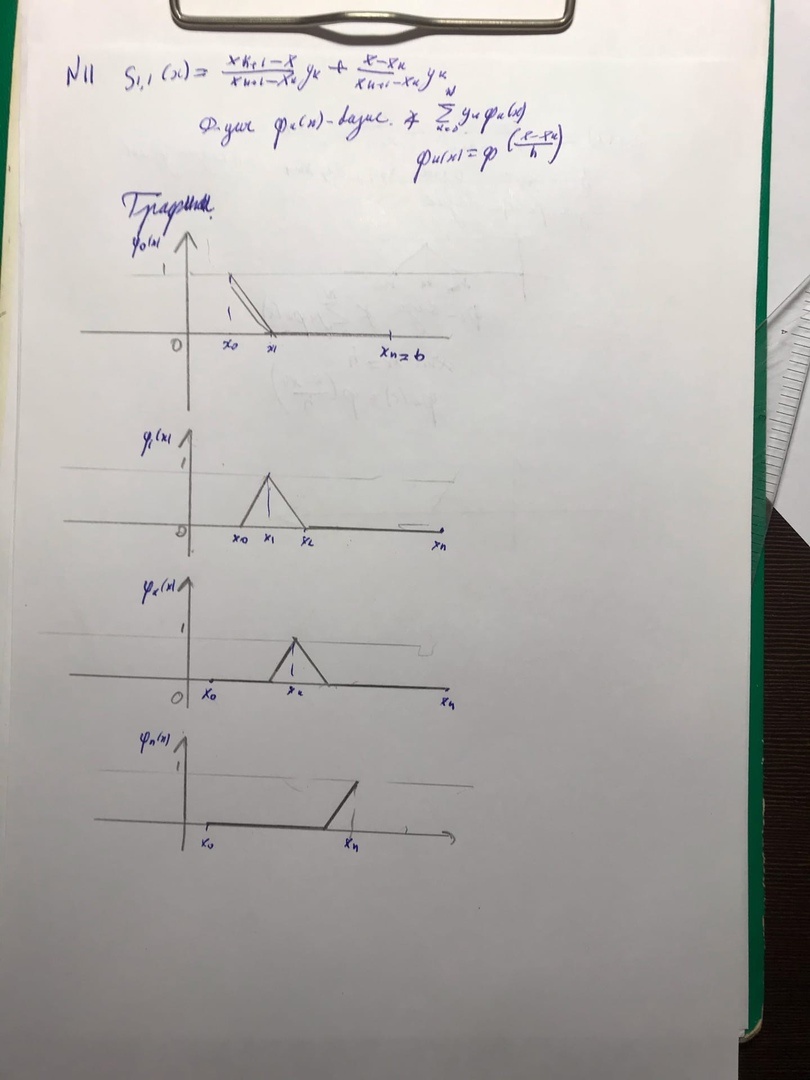 N11 S₁,₁(x) = (xₖ₊₁ - x)/(xₖ₊₁ - xₖ) yₖ + (x - xₖ)/(xₖ₊₁ - xₖ) yₖ
φₖ(x) - базис. ∑ₖ₌₀ᴺ yₖ φₖ(x)
φₖ(x) = φ((x - xₖ)/h)
Графики.
φ₀(x)
1
0 x₀ x₁ xₙ = b
φ₁(x)
1
0 x₀ x₁ x₂ xₙ
φₖ(x)
1
0 x₀ xₖ xₙ
φₙ(x)
1
x₀ xₙ